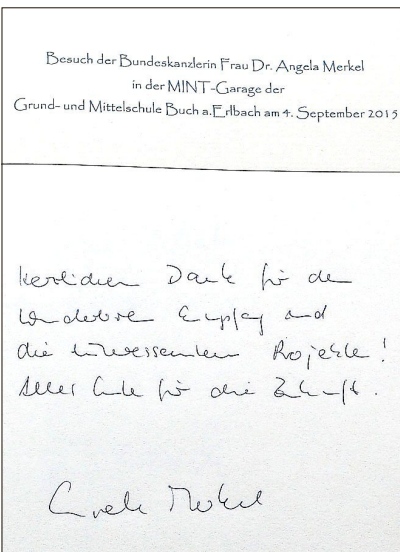 Besuch der Bundeskanzlerin Frau Dr. Angela Merkel
in der MINT-Garage der
Grund- und Mittelschule Buch a.Erlbach am 4. September 2015
Herzlichen Dank für den
wunderbaren Empfang und
die interessanten Projekte!
Alles Gute für die Zukunft.
Angela Merkel